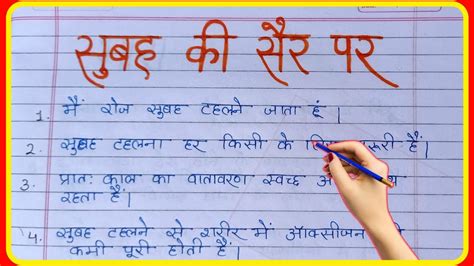 सुबह की सैर पर
1. मैं रोज सुबह टहलने जाता हूं।
2. सुबह टहलना हर किसी के रूरी हैं।
3. प्रातः काल का वातावरण स्वच्छ
रहता हैं।
4. सुबह टहलने से शरीर में ऑक्सीजन की
कमी पूरी होती हैं।